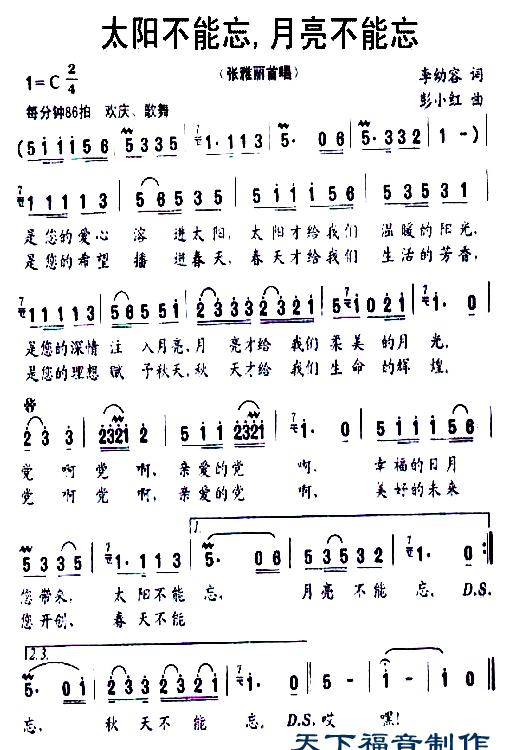 太阳不能忘，月亮不能忘
（张雅丽首唱）
1=C 2/4
李幼容 词
每分钟86拍 欢庆、歌舞
彭小红 曲
(5 1 1 1 5 6 | 5 3 3 5 | 1· 1 3 3 | 5· 0 6 | 5 3 3 2 | 1 -) |
1 1 1 1 3 | 5 6 5 3 5 | 5 1 1 1 5 6 | 5 3 5 3 1 |
是您的爱心 溶 进太阳， 太阳才给我们 温暖的阳光，
是您的希望 播 进春天， 春天才给我们 生活的芳香，
1 1 1 1 3 | 5 6 5 5 1 | 2 3 2 3 3 3 | 3 5 5 3 2 | 5 1 0 2 1 |
是您的深情 注 入月亮，月 亮才给 我们 柔美的月 光，
是您的理想 赋 予秋天，秋 天才给 我们 生命的辉 煌，
2 3 3 | 2321 2 | 5 1 1 2321 | 1· 0 | 5 1 1 1 5 6 |
党 啊 党 啊， 亲爱的党 啊， 幸福的日月
党 啊 党 啊， 亲爱的党 啊， 美好的未来
1.
5 3 3 5 | 1· 1 3 3 | 5· 0 6 | 5 3 5 3 2 | 1· 0 :|
您带来， 太 阳不能 忘， 月亮 不 能 忘， D.S.
您开创， 春 天不能
2.3.
5· 0 1 | 2 2 2 5 | 1· 0 | 5 - | 1 - | 1 0 |
忘， 秋 天不 能 忘， D.S. 哎 嘿！
天下福音制作